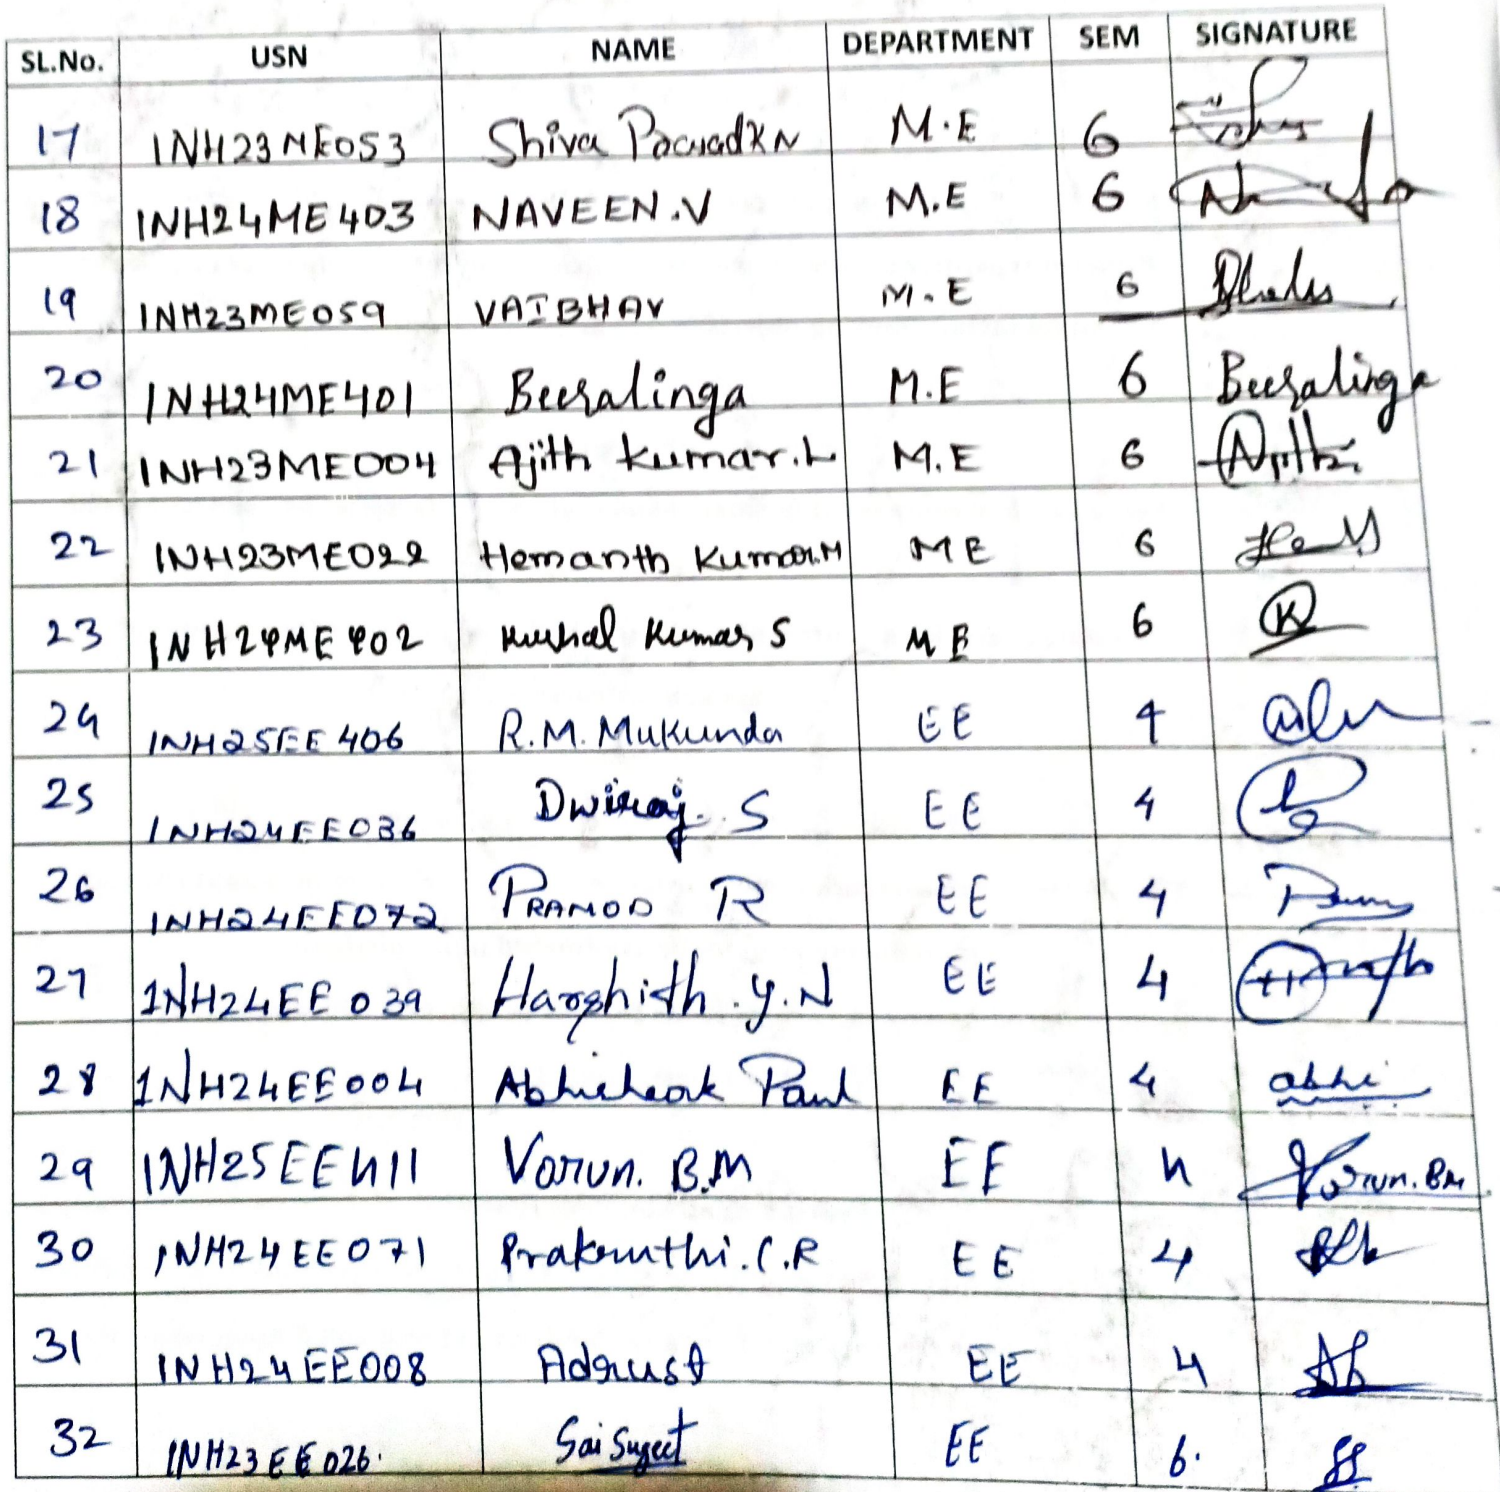 SL.No. USN NAME DEPARTMENT SEM SIGNATURE
17 1NH23ME053 Shiva Prasad K N M.E 6
18 1NH24ME403 NAVEEN.V M.E 6
19 1NH23ME059 VAIBHAV M.E 6
20 1NH24ME401 Beeralinga M.E 6 Beeralinga
21 1NH23ME004 Ajith Kumar.L M.E 6
22 1NH23ME022 Hemanth Kumar.M ME 6
23 1NH24ME402 Kushal Kumar S ME 6 K
24 1NH25EE406 R.M. Mukunda EE 4
25 1NH24EE036 Dwiraj. S EE 4
26 1NH24EE072 PRAMOD R EE 4
27 1NH24EE039 Harshith.y.N EE 4
28 1NH24EE004 Abhishek Paul EE 4 abhi
29 1NH25EE411 Varun. B.M EE 4 Varun. BM
30 1NH24EE071 Prakruthi.C.R EE 4
31 1NH24EE008 EE 4
32 1NH23EE026. Sai Sujeet EE 6. SS